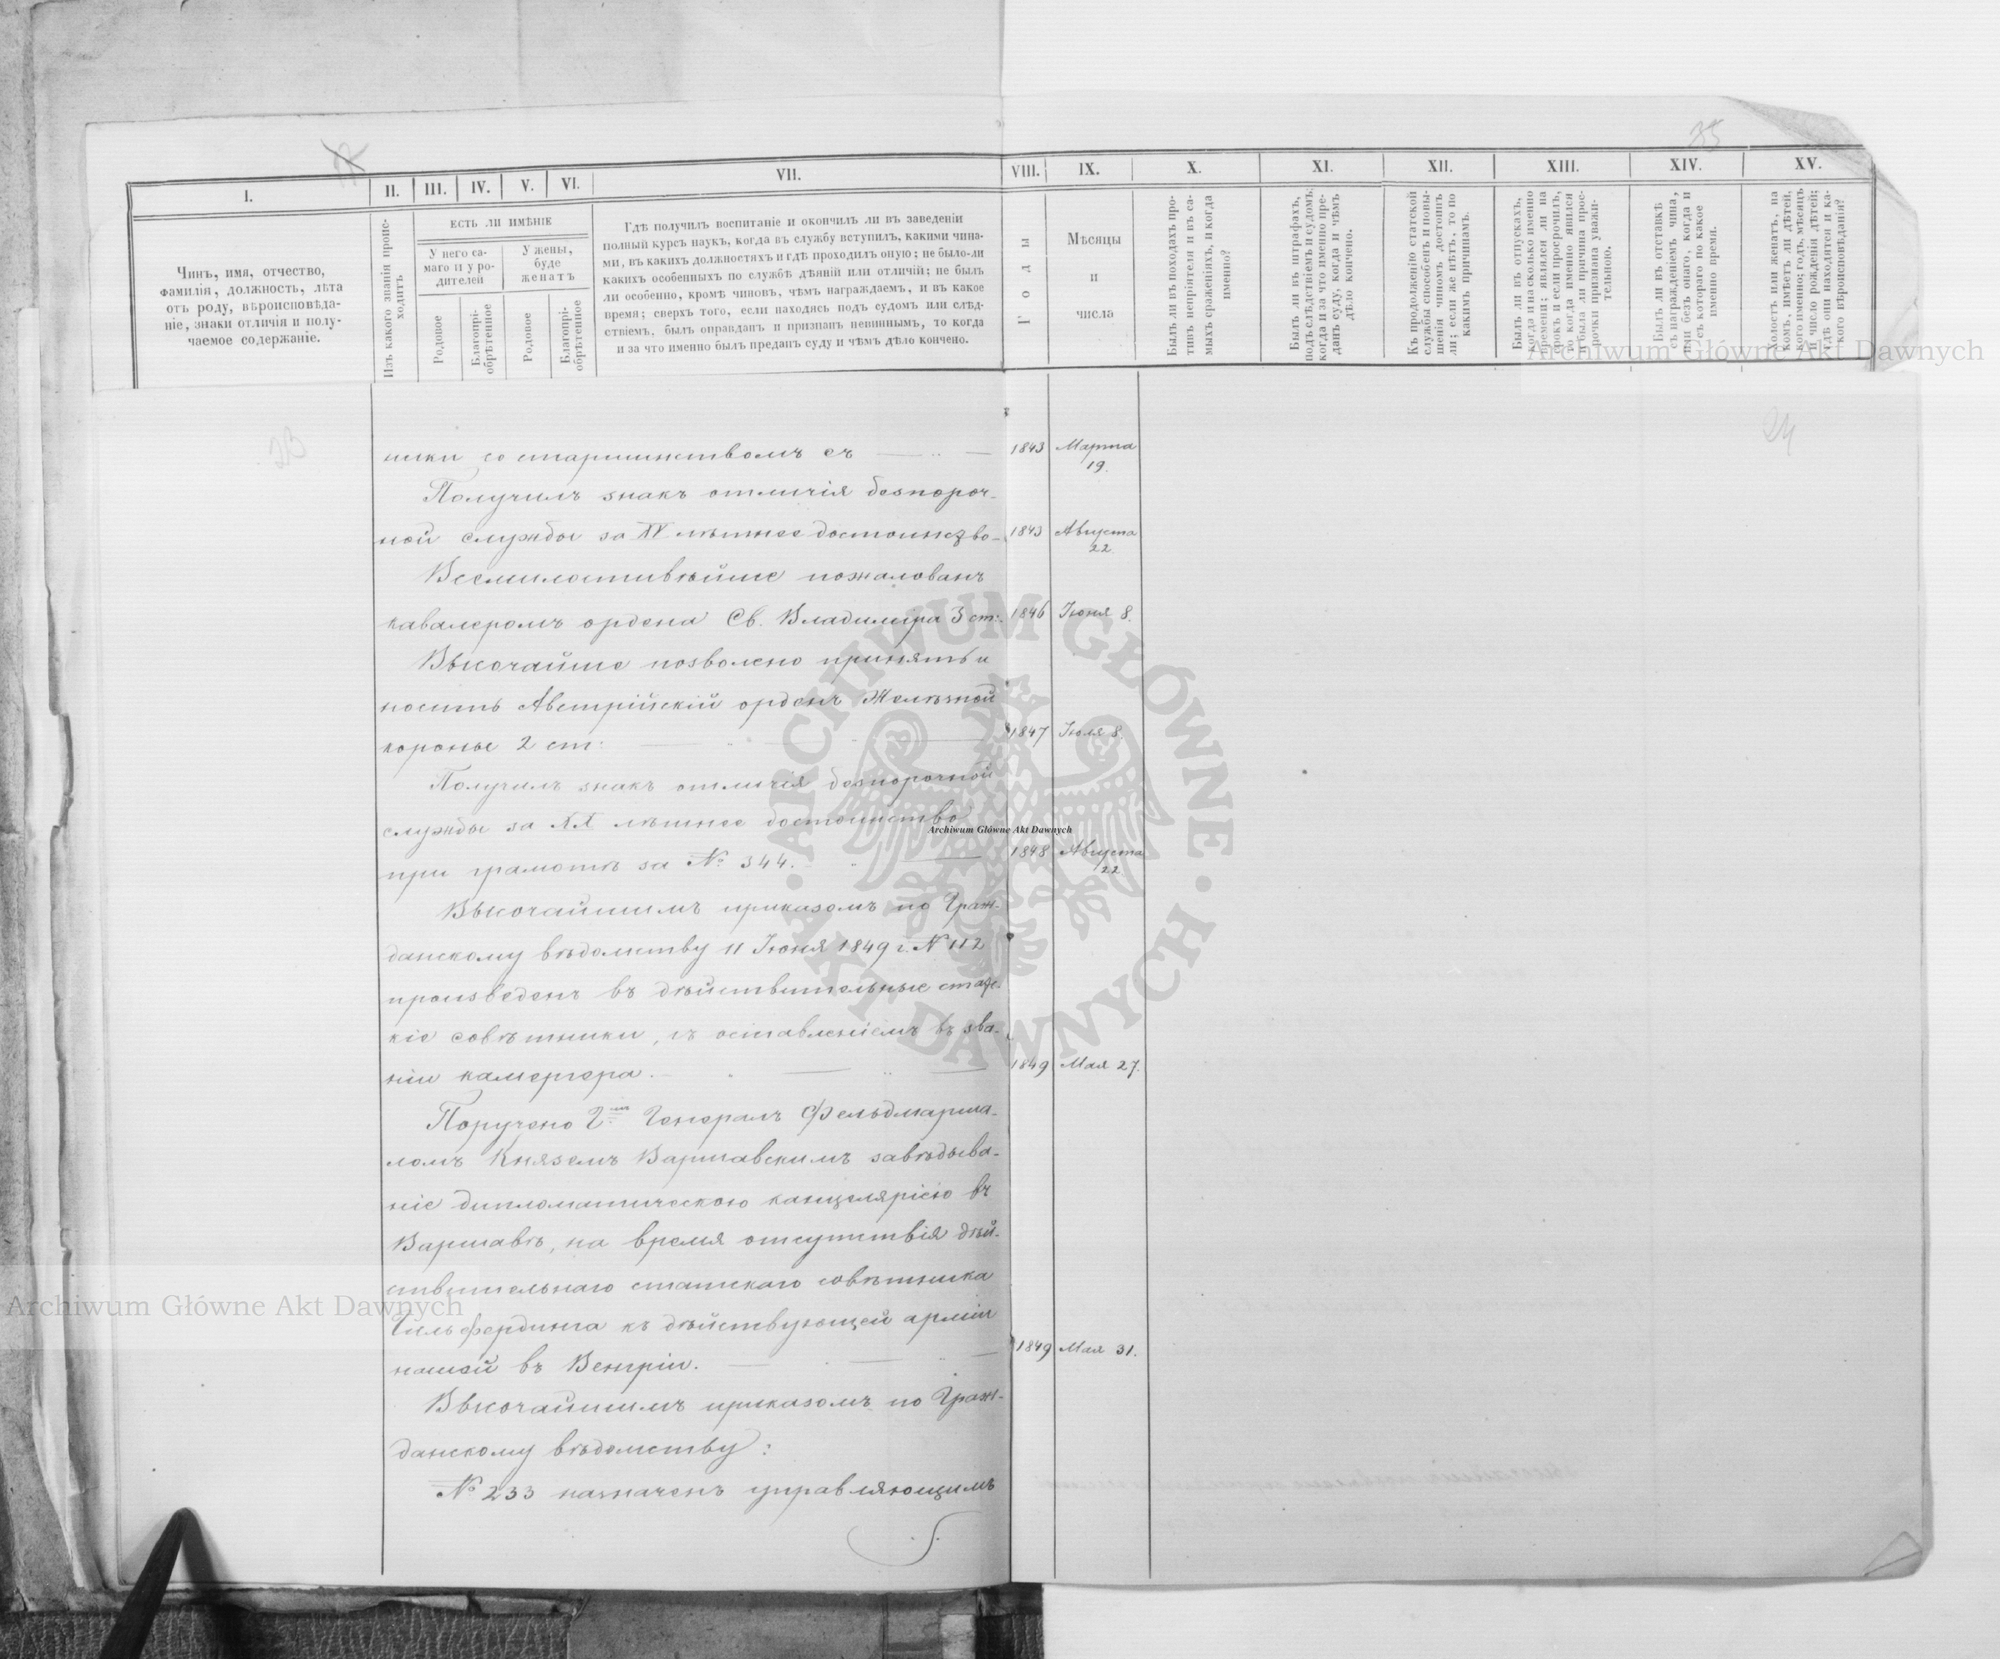 35
I. II. III. IV. V. VI. VII. VIII. IX. X. XI. XII. XIII. XIV. XV.
Чинъ, имя, отчество,
фамилія, должность, лѣта
отъ роду, вѣроисповѣда-
ніе, знаки отличія и полу-
чаемое содержаніе.
Изъ какого званія проис-
ходитъ
ЕСТЬ ЛИ ИМѢНІЕ
У него са-
маго и у ро-
дителей
У жены,
буде
женатъ
Родовое
Благопрі-
обрѣтенное
Родовое
Благопрі-
обрѣтенное
Гдѣ получилъ воспитаніе и окончилъ ли въ заведеніи
полный курсъ наукъ, когда въ службу вступилъ, какими чина-
ми, въ какихъ должностяхъ и гдѣ проходилъ оную; не было-ли
какихъ особенныхъ по службѣ дѣяній или отличій; не былъ
ли особенно, кромѣ чиновъ, чѣмъ награждаемъ, и въ какое
время; сверхъ того, если находясь подъ судомъ или слѣд-
ствіемъ, былъ оправданъ и признанъ невиннымъ, то когда
и за что именно былъ преданъ суду и чѣмъ дѣло кончено.
Годы
Мѣсяцы
и
числа
Былъ ли въ походахъ про-
тивъ непріятеля и въ са-
мыхъ сраженіяхъ, и когда
именно?
Былъ ли въ штрафахъ,
подъ слѣдствіемъ и судомъ;
когда и за что именно пре-
данъ суду, когда и чѣмъ
дѣло кончено.
Къ продолженію статской
службы способенъ и повы-
шенія чиномъ достоинъ
ли; если же нѣтъ, то по
какимъ причинамъ.
Былъ ли въ отпускахъ,
когда и на сколько именно
времени; являлся ли на
срокъ и если просрочилъ,
то когда именно явился
и была ли причина прос-
рочки признана уважи-
тельною.
Былъ ли въ отставкѣ
съ награжденіемъ чина,
или безъ онаго, когда и
съ котораго по какое
именно время.
Холостъ или женатъ, на
комъ, имѣетъ ли дѣтей,
кого именно; годъ, мѣсяцъ
и число рожденія дѣтей;
гдѣ они находятся и ка-
кого вѣроисповѣданія?
23
24
ники со старшинствомъ съ 1843 Марта 19.
Получилъ знакъ отличія безпороч-
ной службы за XV лѣтнее достоинство 1843 Августа 22.
Всемилостивѣйше пожалованъ
кавалеромъ ордена Св. Владимира 3 ст: 1846 Іюня 8.
Высочайше позволено принять и
носить Австрійскій орденъ Желѣзной
короны 2 ст: 1847 Іюля 8.
Получилъ знакъ отличія безпорочной
службы за XX лѣтнее достоинство
при грамотѣ за № 344. 1848 Августа 22
Высочайшимъ приказомъ по Граж-
данскому вѣдомству 11 Іюня 1849 г. № 112
произведенъ въ дѣйствительные статс-
кіе совѣтники, съ оставленіемъ въ зва-
ніи камергера. 1849 Мая 27.
Поручено Гмъ Генералъ Фельдмарша-
ломъ Княземъ Варшавскимъ завѣдыва-
ніе дипломатическою канцеляріею въ
Варшавѣ, на время отсутствія дѣй-
ствительнаго статскаго совѣтника
Гильфердинга къ дѣйствующей арміи
нашей въ Венгріи. 1849 Мая 31.
Высочайшимъ приказомъ по Граж-
данскому вѣдомству:
№ 233 назначенъ управляющимъ
Archiwum Główne Akt Dawnych
Archiwum Główne Akt Dawnych
Archiwum Główne Akt Dawnych
ARCHIWUM GŁÓWNE · AKT DAWNYCH ·